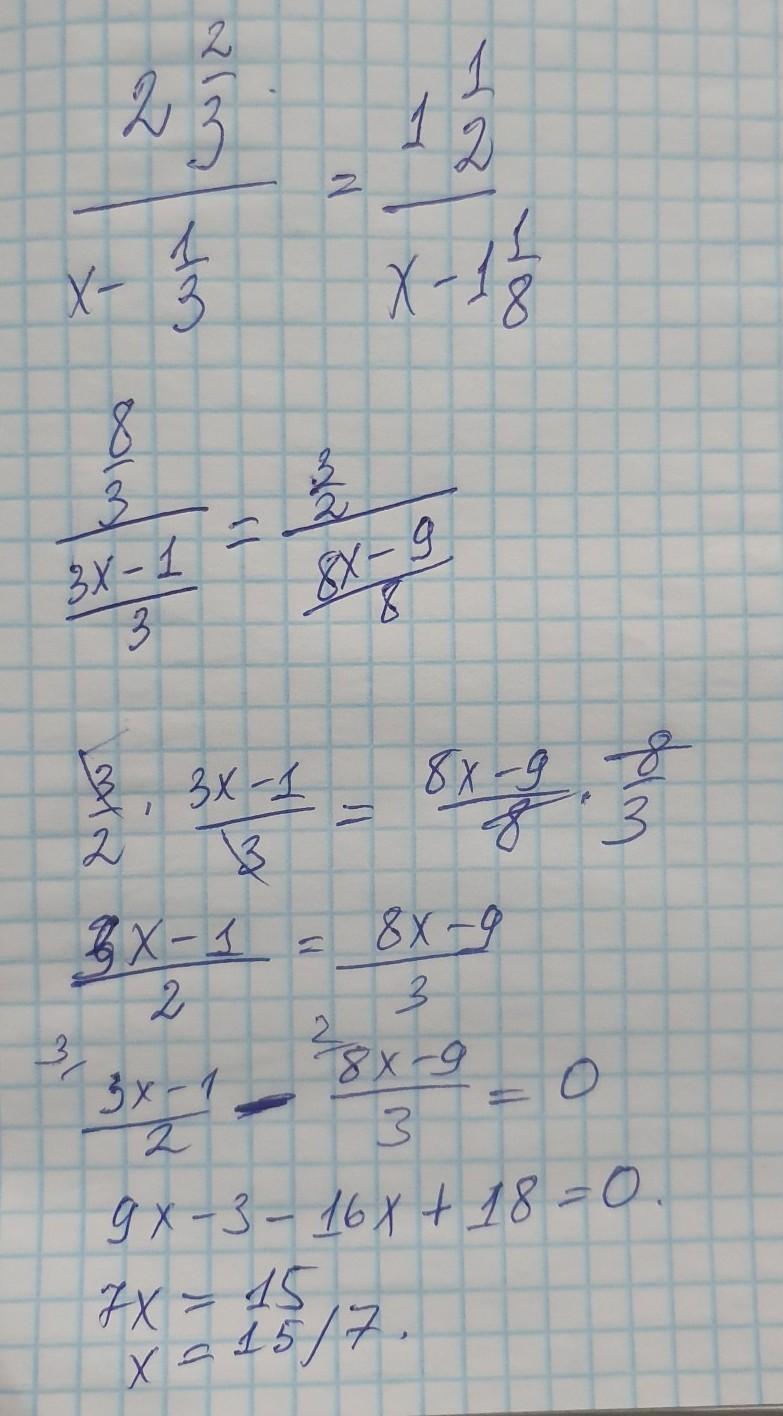 2 2/3 / (x - 1/3) = 1 1/2 / (x - 1 1/8)
8/3 / ((3x-1)/3) = 3/2 / ((8x-9)/8)
3/2 · (3x-1)/3 = (8x-9)/8 · 8/3
(3x-1)/2 = (8x-9)/3
3/ (3x-1)/2 - 2/ (8x-9)/3 = 0
9x-3-16x+18=0.
7x = 15
x = 15/7.